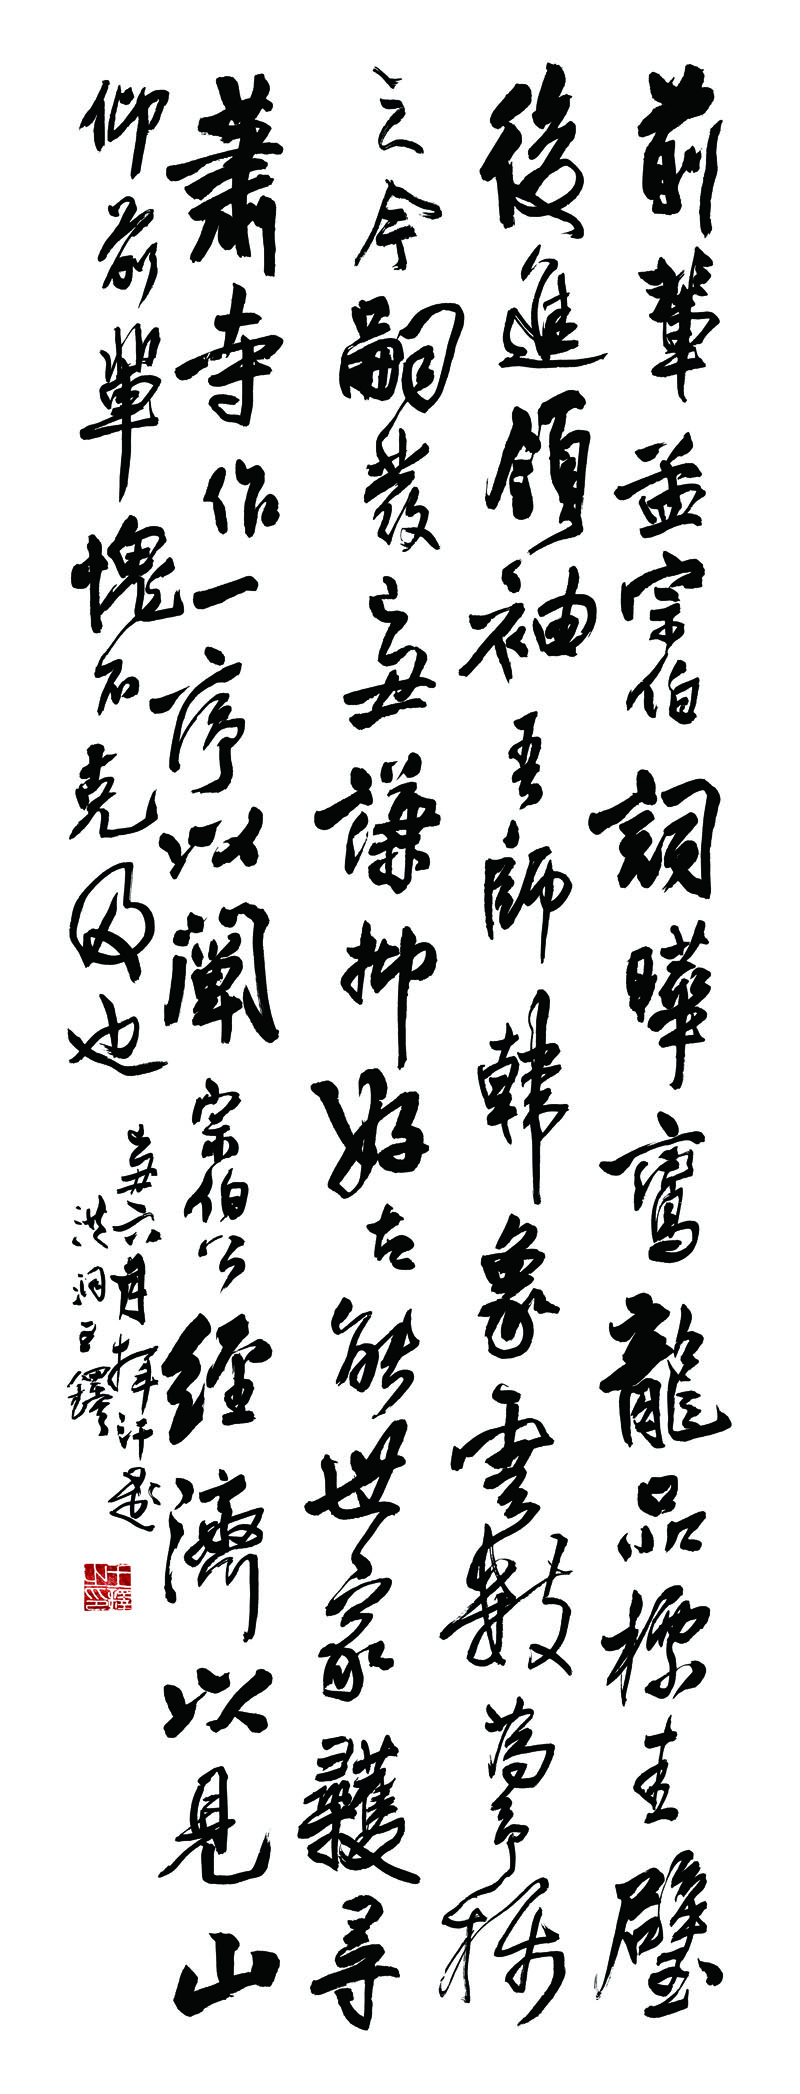 前輩孟宗伯詞曄鸞龍品標圭璧
後進領袖吾師韓象雲數為予稱
之今嗣發己丑謙抑好古能世家尋
蕭寺作一序以闡宗伯公經濟以見山
仰前輩愧不克及也
丑六月揮汗題
洪洞王鐸